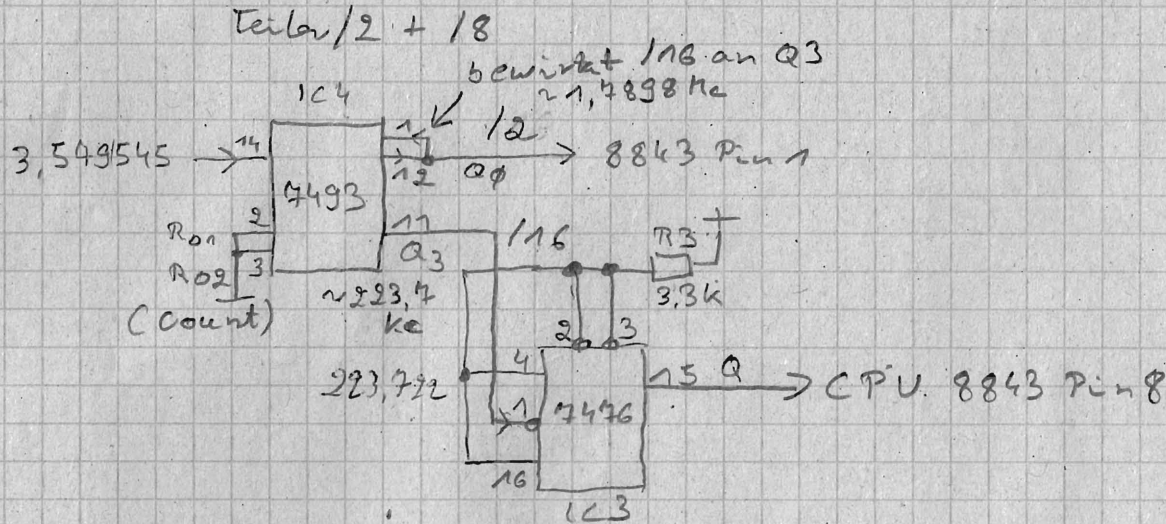 Teiler /2 + /8
bewirkt /16 an Q3
~1,7898 Mc
IC4
3,549545
14
7493
1
12
/2
QØ
8843 Pin 1
R01
2
R02
3
(Count)
11
Q3
/16
~223,7
kc
R3
3,3k
2
3
223,722
4
1
7476
16
15
Q
CPU 8843 Pin 8
IC3